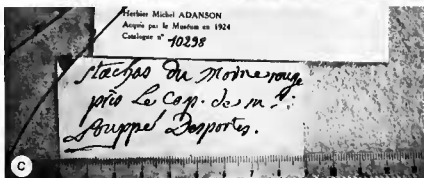 Herbier Michel ADANSON
Acquis par le Muséum en 1924
Catalogue n° 10298
stachas du Morne rouge
près Le Cap. des m
pouppé Desportes.
C